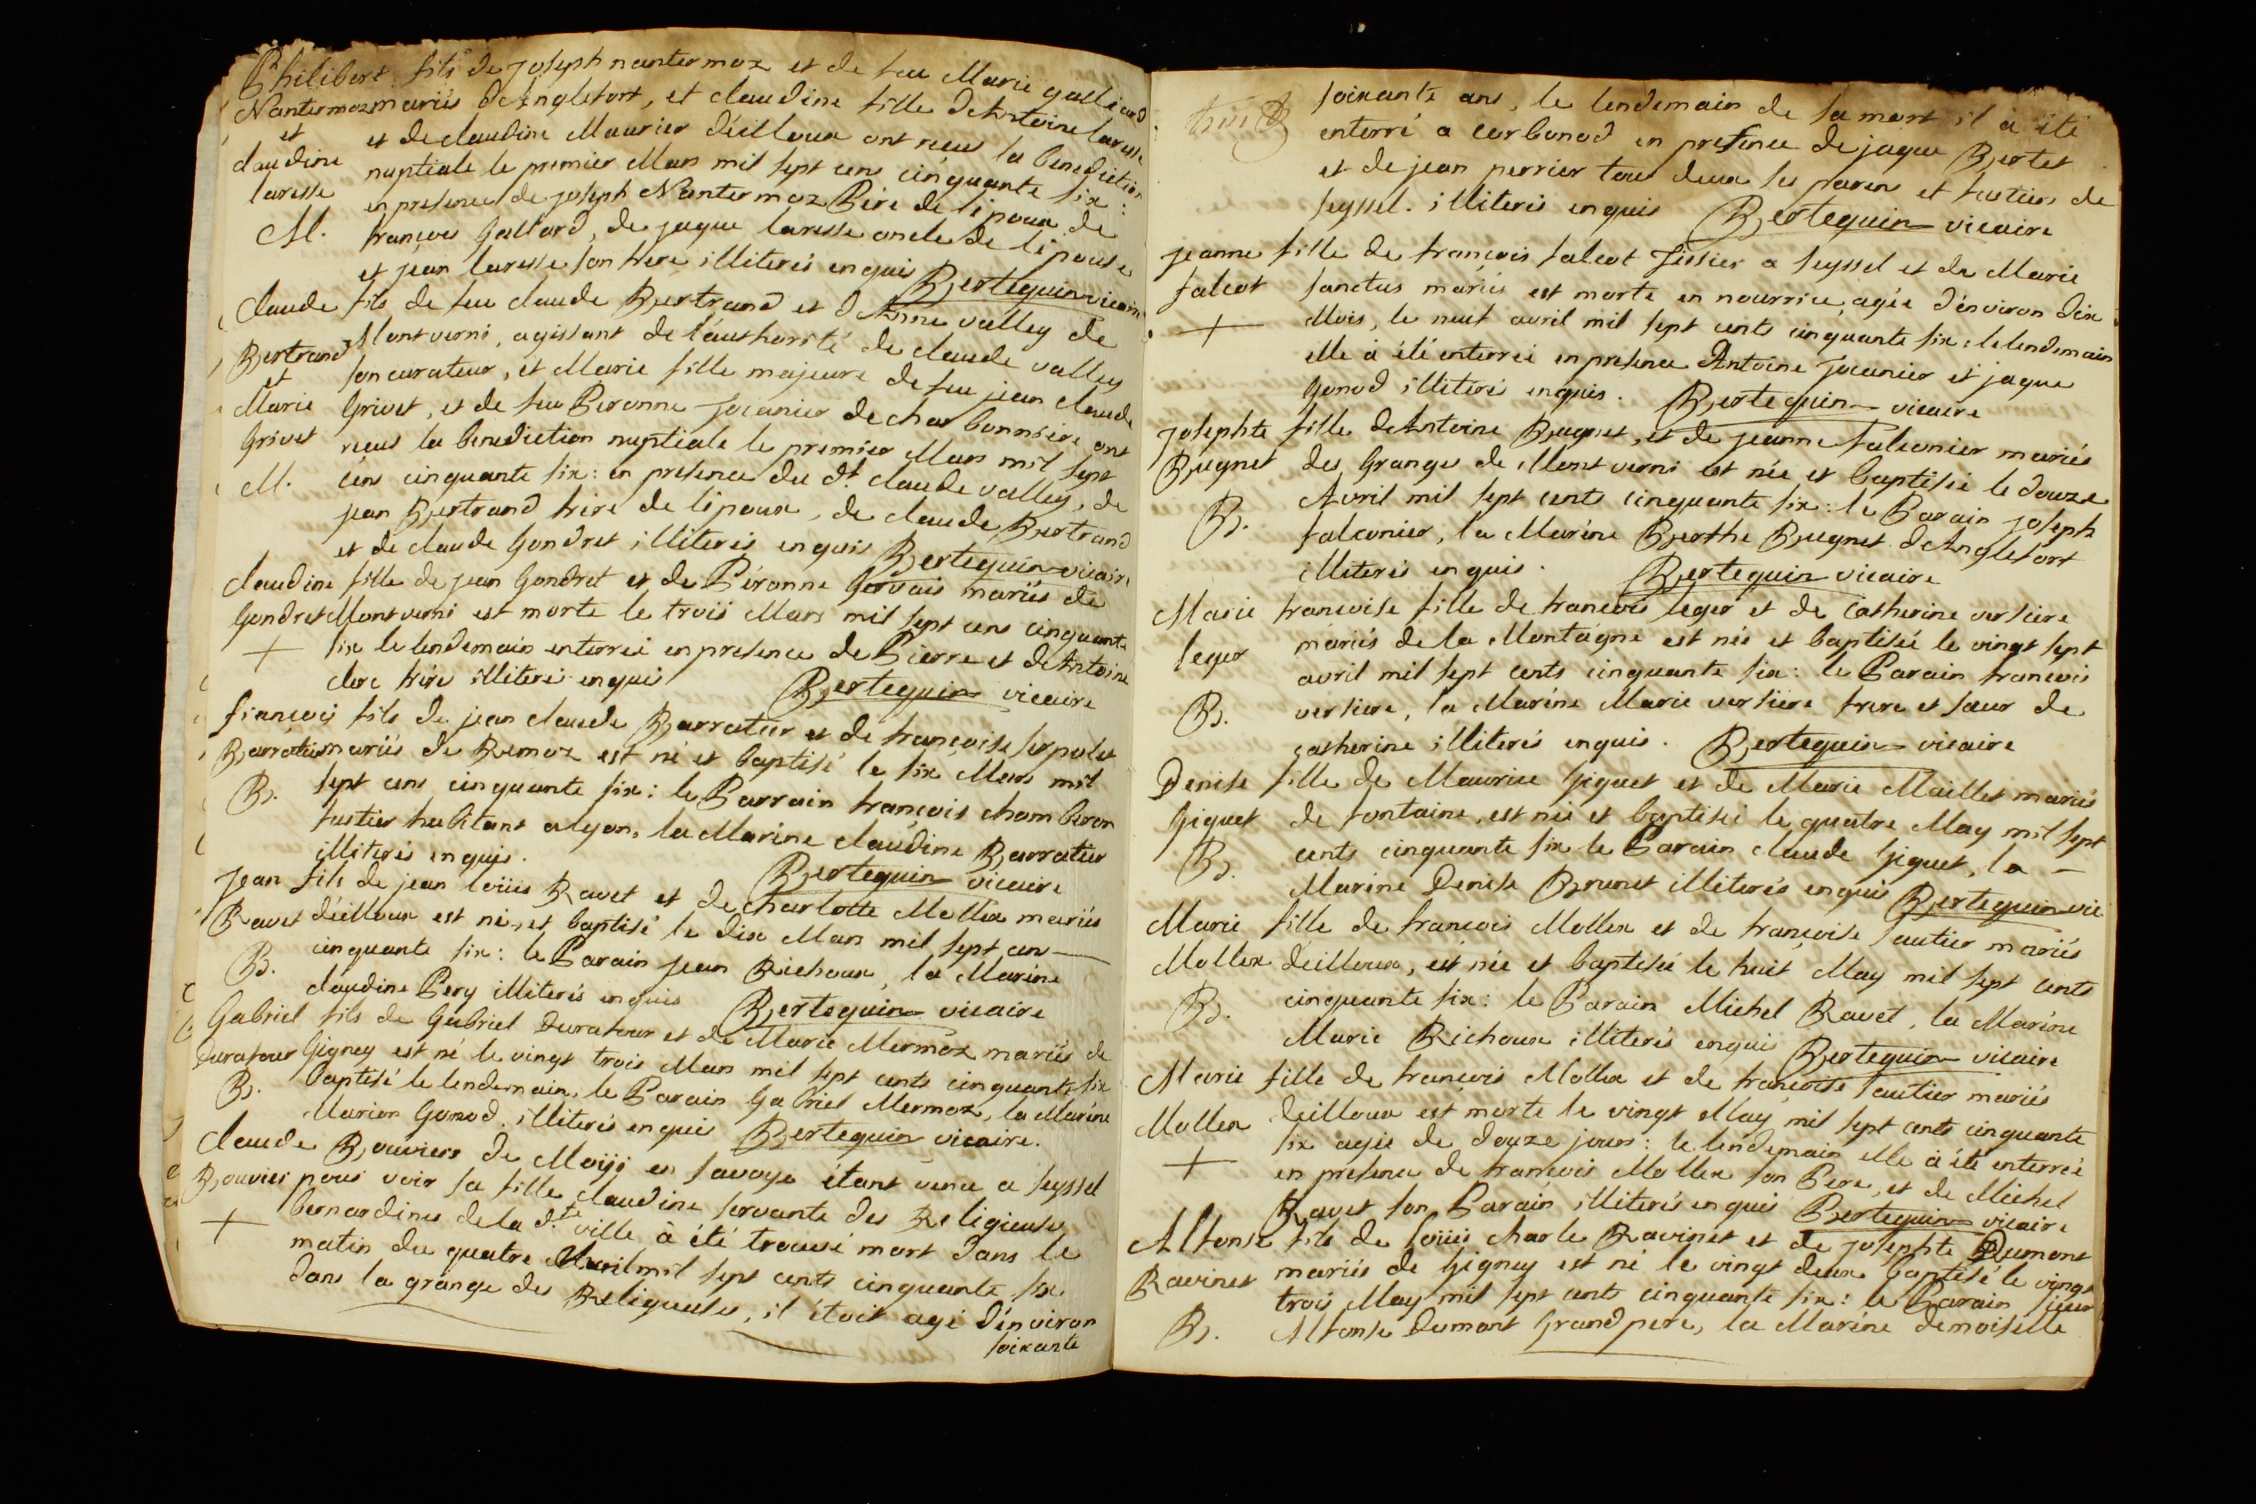 Philibert fils de joseph nantermoz et de feu Marie galliard
Nantermoz mariés d'Anglefort, et claudine fille d'Antoine laresse
et et de claudine Maurier d'éilloux ont reçus la benediction
claudine nuptiale le premier Mars mil sept cens cinquante six:
laresse en presence de joseph Nantermoz Pére de l'époux, de
M. françois Gallard, de jaque laresse oncle de l'épouse
et jean laresse son frere illiterés enquis Bertequin vicaire
claude fils de feu claude Bertrand et d'Anne valley de
Bertrand Montverni, agissant de l'authorité de claude valley
et son curateur, et Marie fille majeure de feu jean claude
Marie Grivet, et de feu Peronne Jocanier de charbonniére ont
Grivet reçus la benediction nuptiale le premier Mars mil sept
M. céns cinquante six: en presence du dt. claude valley, de
jean Bertrand frére de l'époux, de claude Bertrand
et de claude Gondret illiterés enquis Bertequin vicaire
claudine fille de jean Gondret et de Péronne Gervais mariés de
Gondret Montverni est morte le trois Mars mil sept cens cinquante
+ six le lendemain enterrée en presence de Pierre et d'Antoine
clerc frére illiterés enquis Bertequin vicaire
françois fils de jean claude Barratier et de françoise serpolet
Barratier mariés de Remoz est né et baptisé le six Mars mil
B. sept cens cinquante six: le Parrain françois chamberon
fustier habitant a lyon, la Marine claudine Barratier
illiterés enquis. Bertequin vicaire
Jean fils de jean loüis Ravet et de charlotte Mollex mariés
Ravet d'éilloux est né, et baptisé le dix Mars mil sept cen—
B. cinquante six: le Parain jean Richoux, la Marine
claudine Pery illiterés enquis Bertequin vicaire
Gabriel fils de Gabriel Durafour et de Marie Mermoz mariés de
Durafour Gigney est né le vingt trois Mars mil sept cents cinquante six
B. baptisé le lendemain, le Parain Gabriel Mermoz, la Marine
Marion Gonod. illiterés enquis Bertequin vicaire.
claude Bouviers de Moÿs en savoye étant venu a seyssel
Bouvier pour voir sa fille claudine servante des Religieuses
+ bernardines de la dte ville à été trouvé mort dans le
matin du quatre Avril mil sept cents cinquante six
dans la grange des Religieuses, il étoit agé d'environ
soixante
trois
soixante ans, le lendemain de sa mort il à été
enterré a corbonod en presence de jaque Bertet
et de jean perrier tous deux ses parens et fustiers de
seyssel. illiterés enquis Bertequin vicaire
Jeanne fille de françois falcot Tissier a seyssel et de Marie
falcot sanctus mariés est morte en nourrice, agée d'environ dix
+ Mois, le neuf avril mil sept cents cinquante six: le lendemain
elle à été enterrée en presence Antoine Jocanier et jaque
Gonod illiterés enquis. Bertequin vicaire
Josephte fille d'Antoine Bugnet, et de jeanne falconier mariés
Bugnet des Granges de Montverni est née et baptisée le douze
B. Avril mil sept cents cinquante six: le Parain joseph
falconier, la Marine Berthe Bugnet d'Anglefort
illiterés enquis. Bertequin vicaire
Marie francoise fille de francois leger et de catherine versiere
leger mariés de la Montagne est née et baptisée le vingt sept
avril mil sept cents cinquante six: le Parain francois
B. versiere, la Marine Marie versiere frere et sœur de
catherine illiterés enquis. Bertequin vicaire
Denise fille de Maurice Giguet et de Marie Maillet mariés
Giguet de fontaine, est née et baptisée le quatre May mil sept
B. cents cinquante six le Parain claude Giguet, la —
Marine Denise Brunet illiterés enquis Bertequin vic
Marie fille de francois Mollex et de françoise sautier mariés
Mollex d'éilloux, est née et baptisée le huit May mil sept cents
B. cinquante six: le Parain Michel Ravet, la Marine
Marie Richoux illiterés enquis Bertequin vicaire
Marie fille de françois Mollex et de françoise sautier mariés
Mollex d'eilloux est morte le vingt May mil sept cents cinquante
+ six agée de douze jours: le lendemain elle à été enterrée
en presence de francois Mollex son Pere, et de Michel
Ravet son Parain illiterés enquis Bertequin vicaire
Alfonse fils de loüis charle Ravinet et de josephte Dumont
Ravinet mariés de Gigney est né le vingt deux baptisé le vingt
trois May mil sept cents cinquante six: le Parain sieur
B. Alfonse Dumont Grand pere, la Marine demoiselle